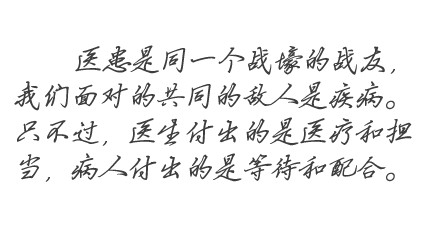 医患是同一个战壕的战友，
我们面对的共同的敌人是疾病。
只不过，医生付出的是医疗和担
当，病人付出的是等待和配合。